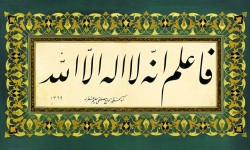 فاعلم انّه لا اله الّا اللّه
١٣٦٩